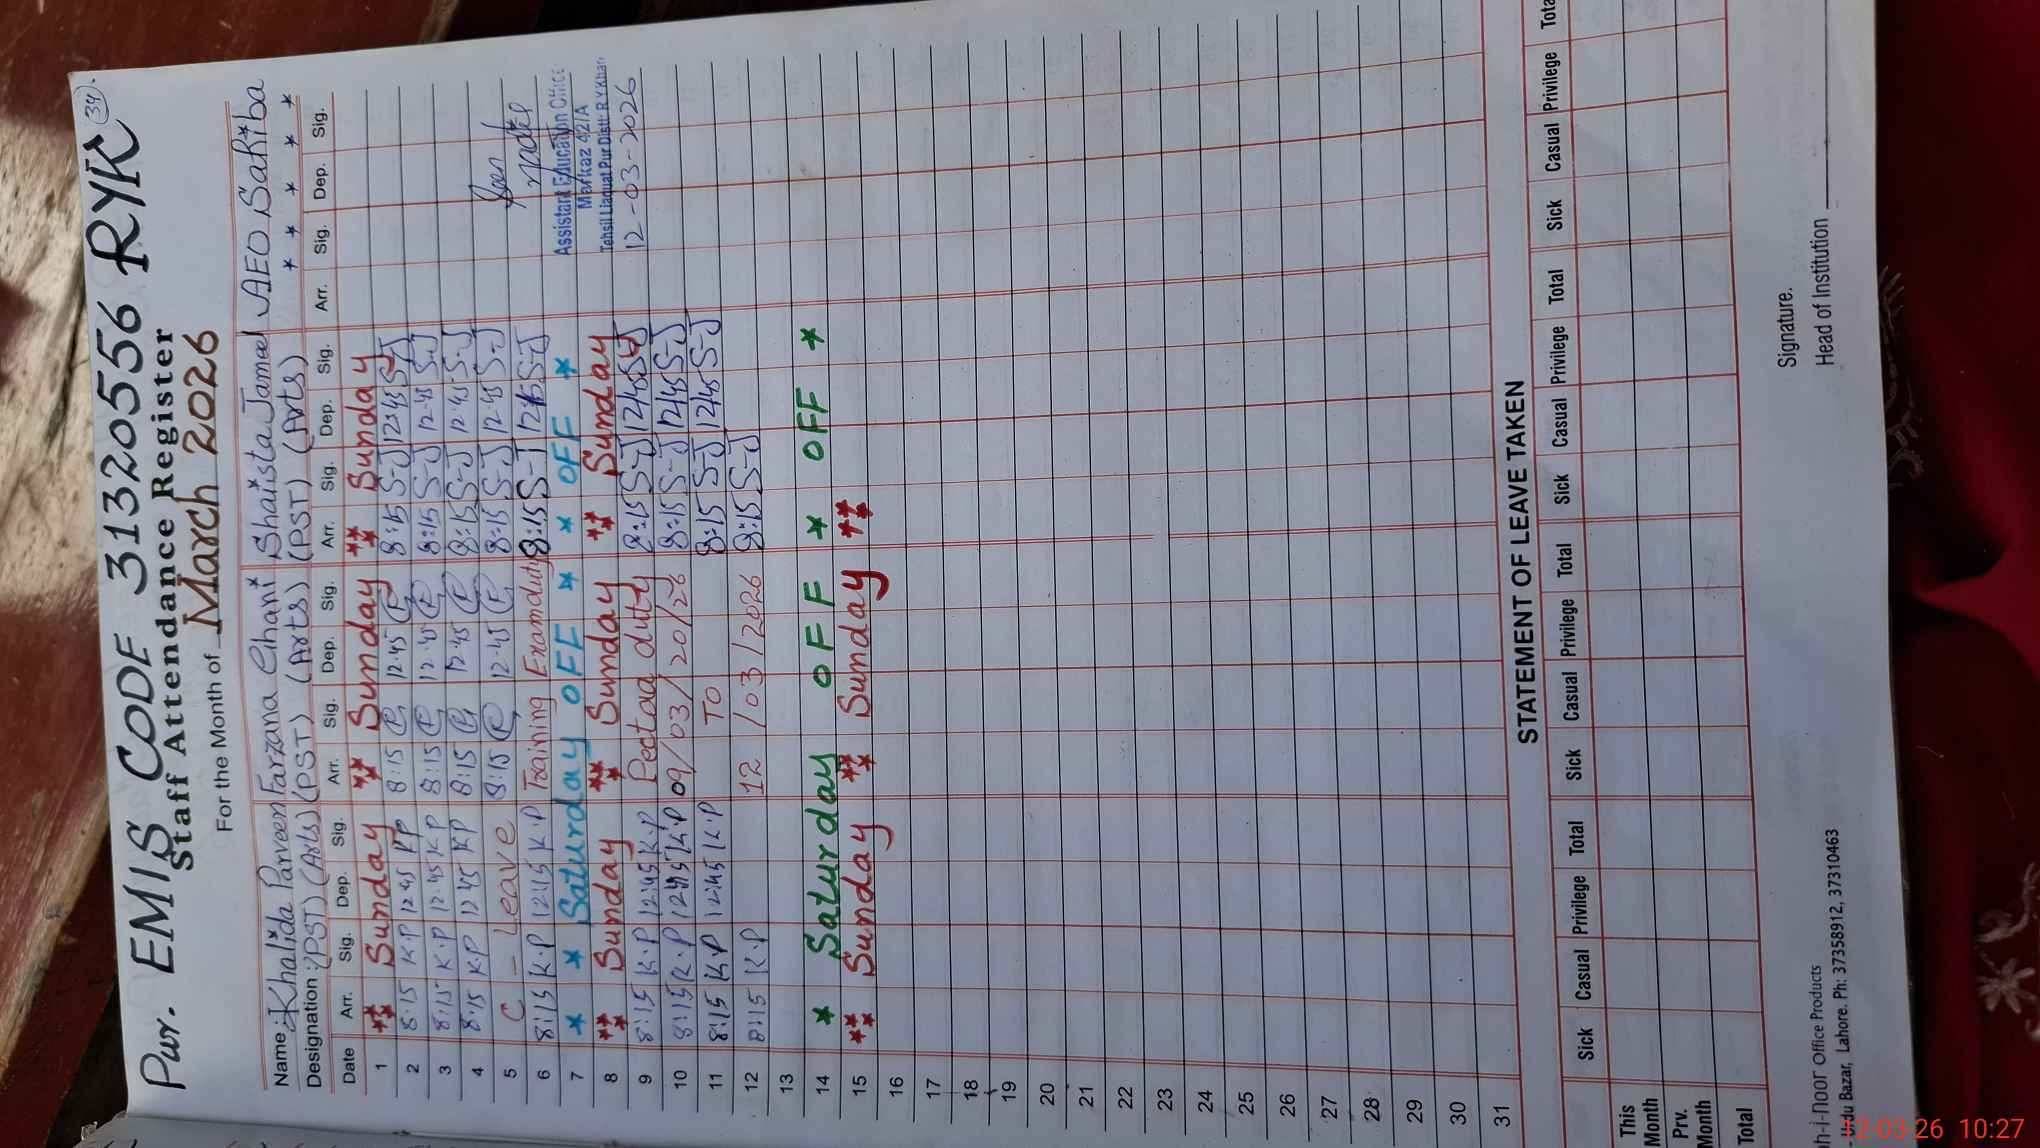 Pwr. EMIS CODE 31320556 RYK (34)
Staff Attendance Register
For the Month of March 2026
Name: Khalida Parveen Farzana Ghani Shaista Jameel AEO Sahiba
Designation: (PST) (Arts) (PST) (Arts) (PST) (Arts)
Date Arr. Sig. Dep. Sig. Arr. Sig. Dep. Sig. Arr. Sig. Dep. Sig. Arr. Sig. Dep. Sig.
1 Sunday Sunday Sunday
2 8:15 K.P 12:45 KP 8:15 12:45 8:15 S-J 12:45 S-J
3 8:15 K.P 12:45 KP 8:15 12:45 8:15 S-J 12:45 S-J
4 8:15 KP 12:45 KP 8:15 12:45 8:15 S-J 12:45 S-J
5 C - Leave 8:15 12:45 8:15 S-J 12:45 S-J
6 8:15 K.P 12:45 K.P Training Exam duty 8:15 S-J 12:45 S-J
7 * Saturday OFF * * OFF * Assistant Education Office
Markaz 42/A
8 Sunday Sunday Sunday Tehsil Liaquat Pur Distt: R.Y.Khan
9 8:15 K.P 12:45 K.P Pectoa duty 8:15 S-J 12:45 S-J 12-03-2026
10 8:15 K.P 12:45 K.P 09/03/20/26 8:15 S-J 12:45 S-J
11 8:15 K.P 12:45 K.P TO 8:15 S-J 12:45 S-J
12 8:15 K.P 12/03/2026 8:15 S-J
13
14 * Saturday OFF * OFF *
15 Sunday Sunday
16
17
18
19
20
21
22
23
24
25
26
27
28
29
30
31
STATEMENT OF LEAVE TAKEN
Sick Casual Privilege Total Sick Casual Privilege Total Sick Casual Privilege Total Sick Casual Privilege Tota
This Month
Prv. Month
Total
Signature.
Head of Institution
h-i-noor Office Products
du Bazar, Lahore. Ph: 37358912, 37310463
12-03-26 10:27